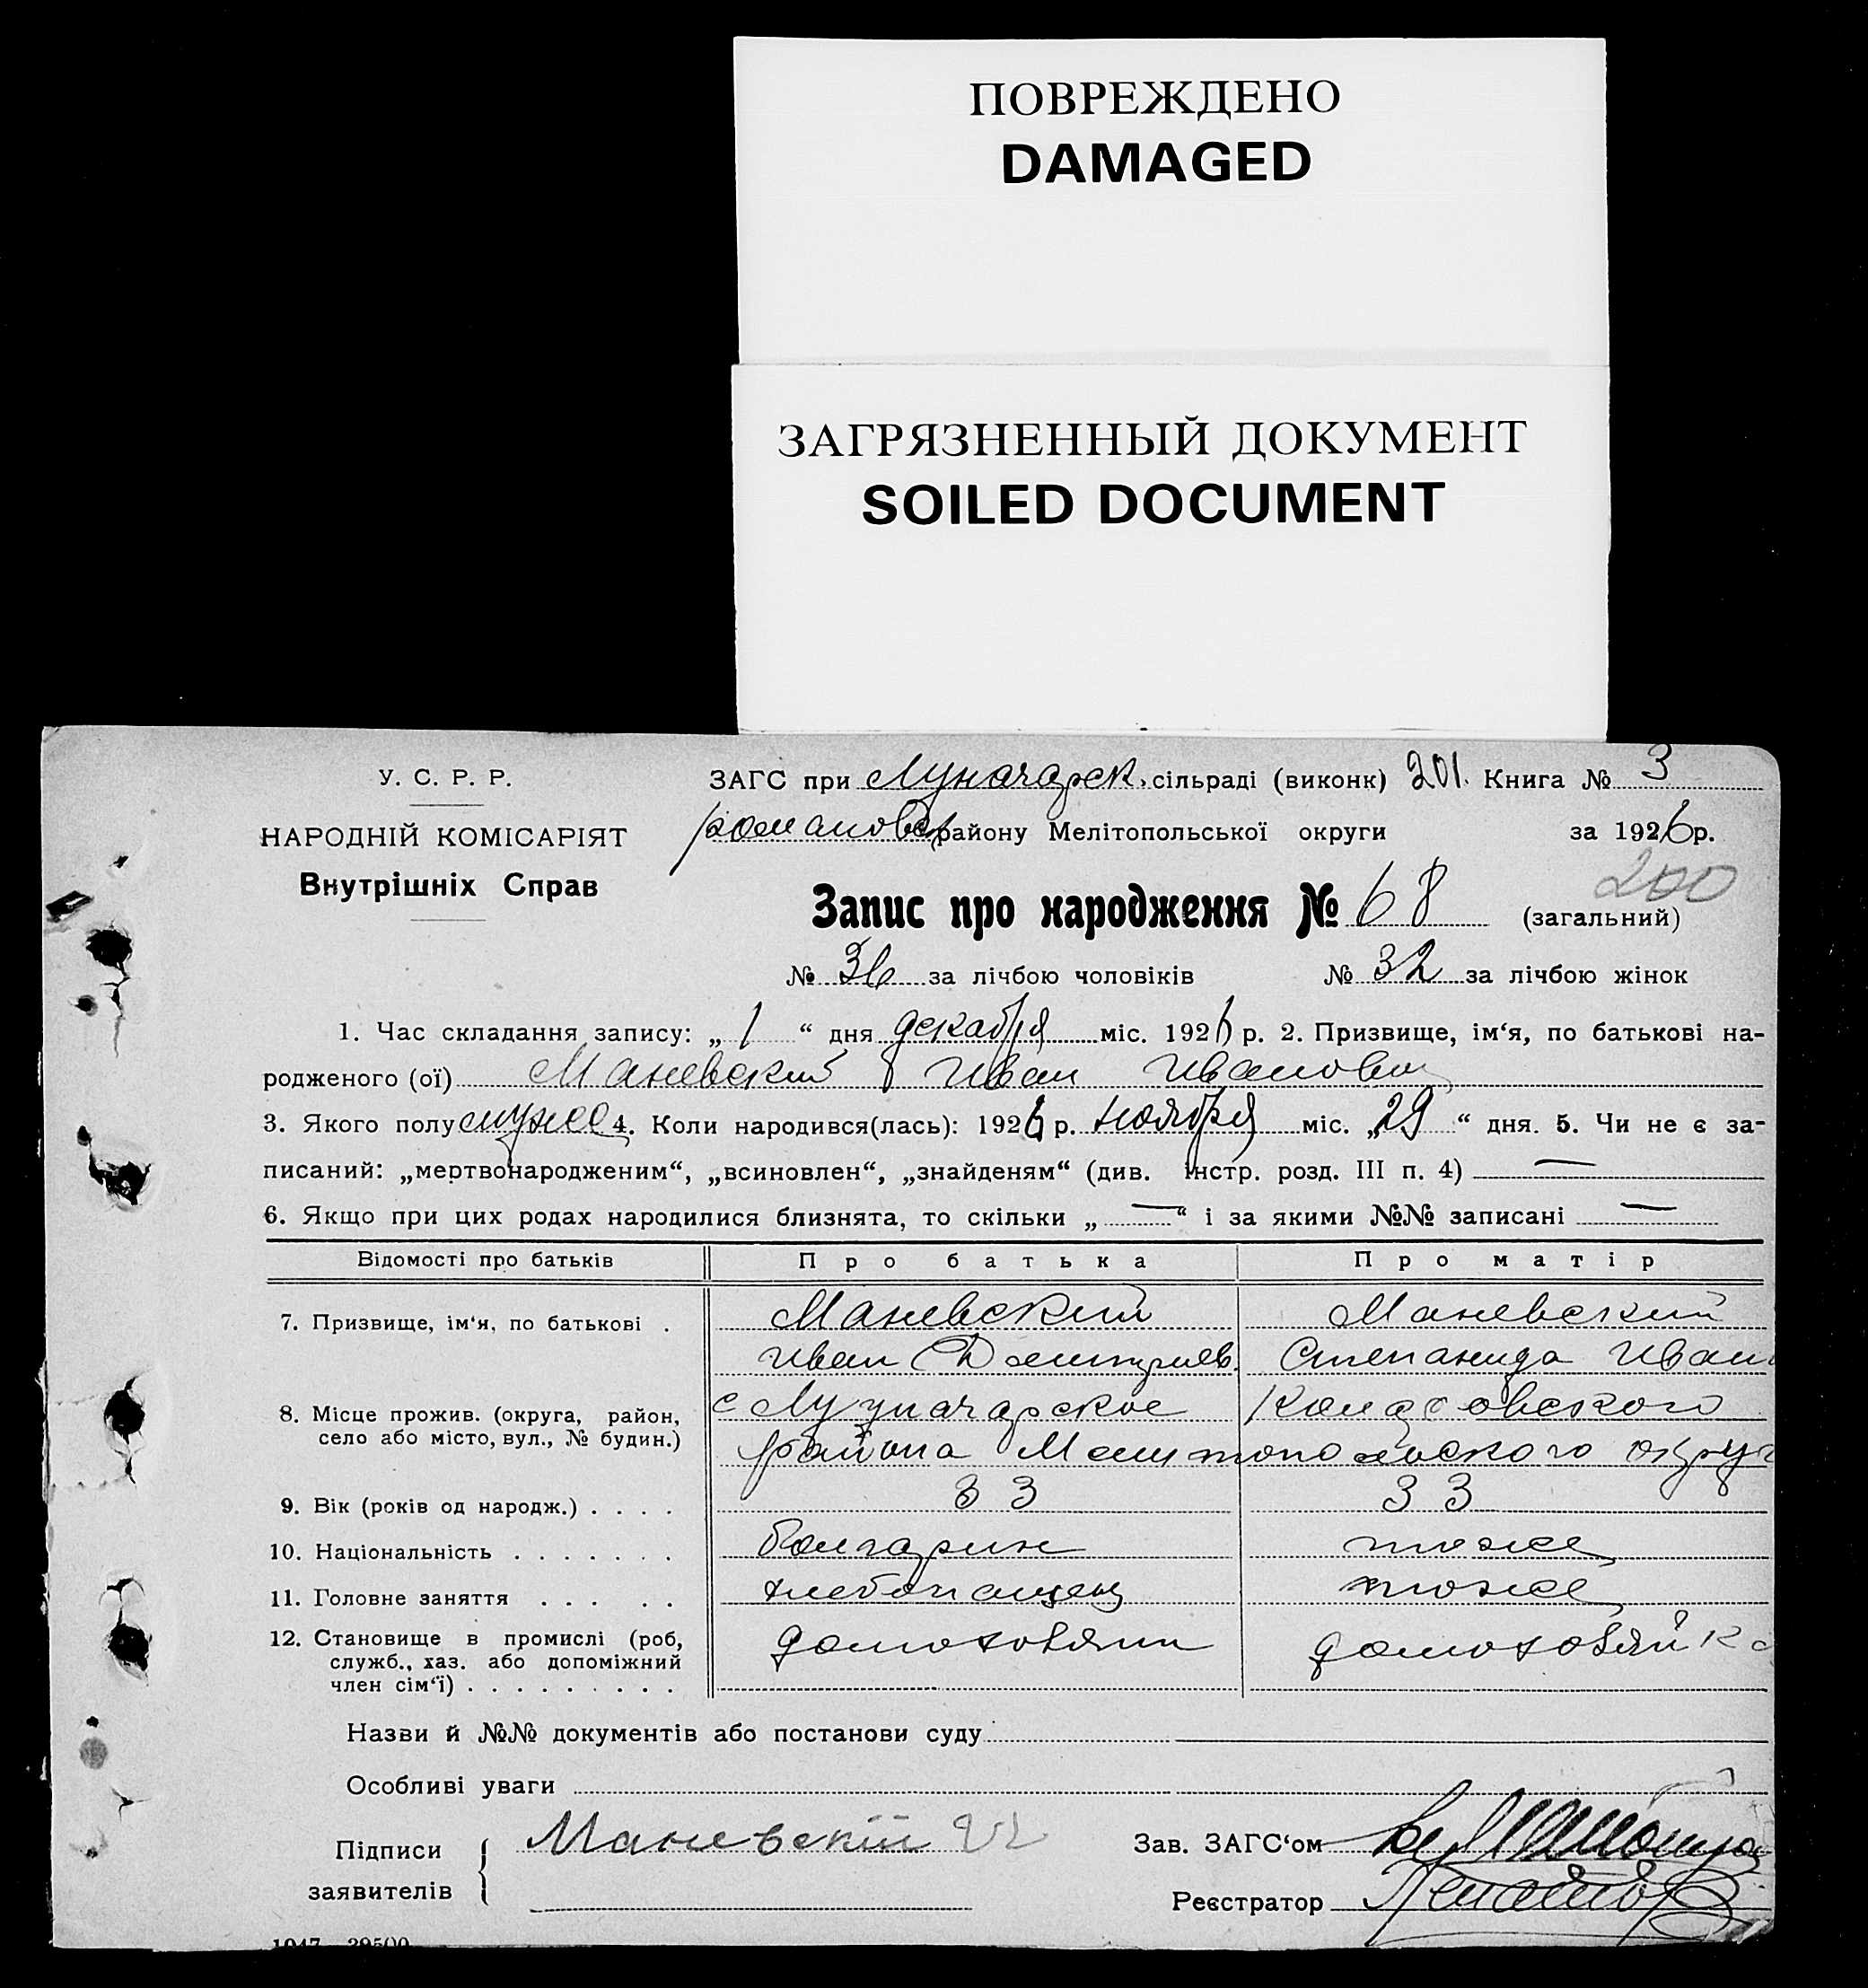 ПОВРЕЖДЕНО
DAMAGED
ЗАГРЯЗНЕННЫЙ ДОКУМЕНТ
SOILED DOCUMENT
У. С. Р. Р.
НАРОДНІЙ КОМІСАРІЯТ
Внутрішніх Справ
ЗАГС при Луначарск. сільраді (виконк) 201. Книга № 3
району Мелітопольської округи за 1926 р.
200
Запис про народження № 68 (загальний)
№ 36 за лічбою чоловіків № 32 за лічбою жінок
1. Час складання запису: „ 1 “ дня декабря міс. 1926 р. 2. Призвище, ім‘я, по батькові на-
родженого (ої) Маневский Иван Иванович
3. Якого полу мужс 4. Коли народився(лась): 1926 р. Ноября міс. „29“ дня. 5. Чи не є за-
писаний: „мертвонародженим“, „всиновлен“, „знайденям“ (див. інстр. розд. III п. 4) —
6. Якщо при цих родах народилися близнята, то скільки „ — “ і за якими №№ записані —
Відомості про батьків Про батька Про матір
7. Призвище, ім‘я, по батькові . Маневский Маневский
Иван Дмитриев. Степанида Иван
8. Місце прожив. (округа, район, село або місто, вул., № будин.) с
района Мелитопольского округ
9. Вік (років од народж.) . . . . 33 33
10. Національність . . . . . . . болгарин тоже
11. Головне заняття . . . . . хлебопашец тоже
12. Становище в промислі (роб, служб., хаз. або допоміжний член сім‘ї) . . . . . . . . . домохозяин домохозяйка
Назви й №№ документів або постанови суду
Особливі уваги
Підписи заявителів { Маневский
Зав. ЗАГС‘ом
Реєстратор
1047—29500